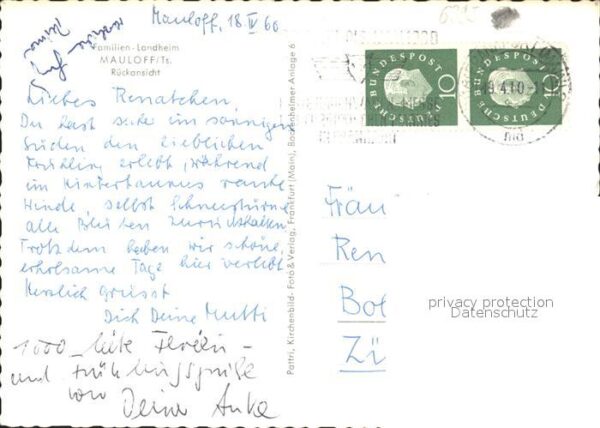 Mauloff, 18 IV 60
Familien-Landheim
MAULOFF/Ts.
Rückansicht
Liebes Renatchen,
Du hast sicher im sonnigen
Süden den lieblichen
Frühling erlebt, während
im Hintertaunus rauhe
Winde, selbst Schneestürme
alle Blüten zurückhalten
Trotzdem haben wir schöne,
erholsame Tage hier verlebt
Herzlich grüsst
Dich Deine Mutti
1000 liebe Ferien-
und Frühlingsgrüße
von Deine Anke
Pattri, Kirchenbild- Foto & Verlag, Frankfurt (Main), Bockenheimer Anlage 6
DEUTSCHE BUNDESPOST 10
DEUTSCHE BUNDESPOST 10
Fräu
Ren
Bot
Zü
privacy protection
Datenschutz